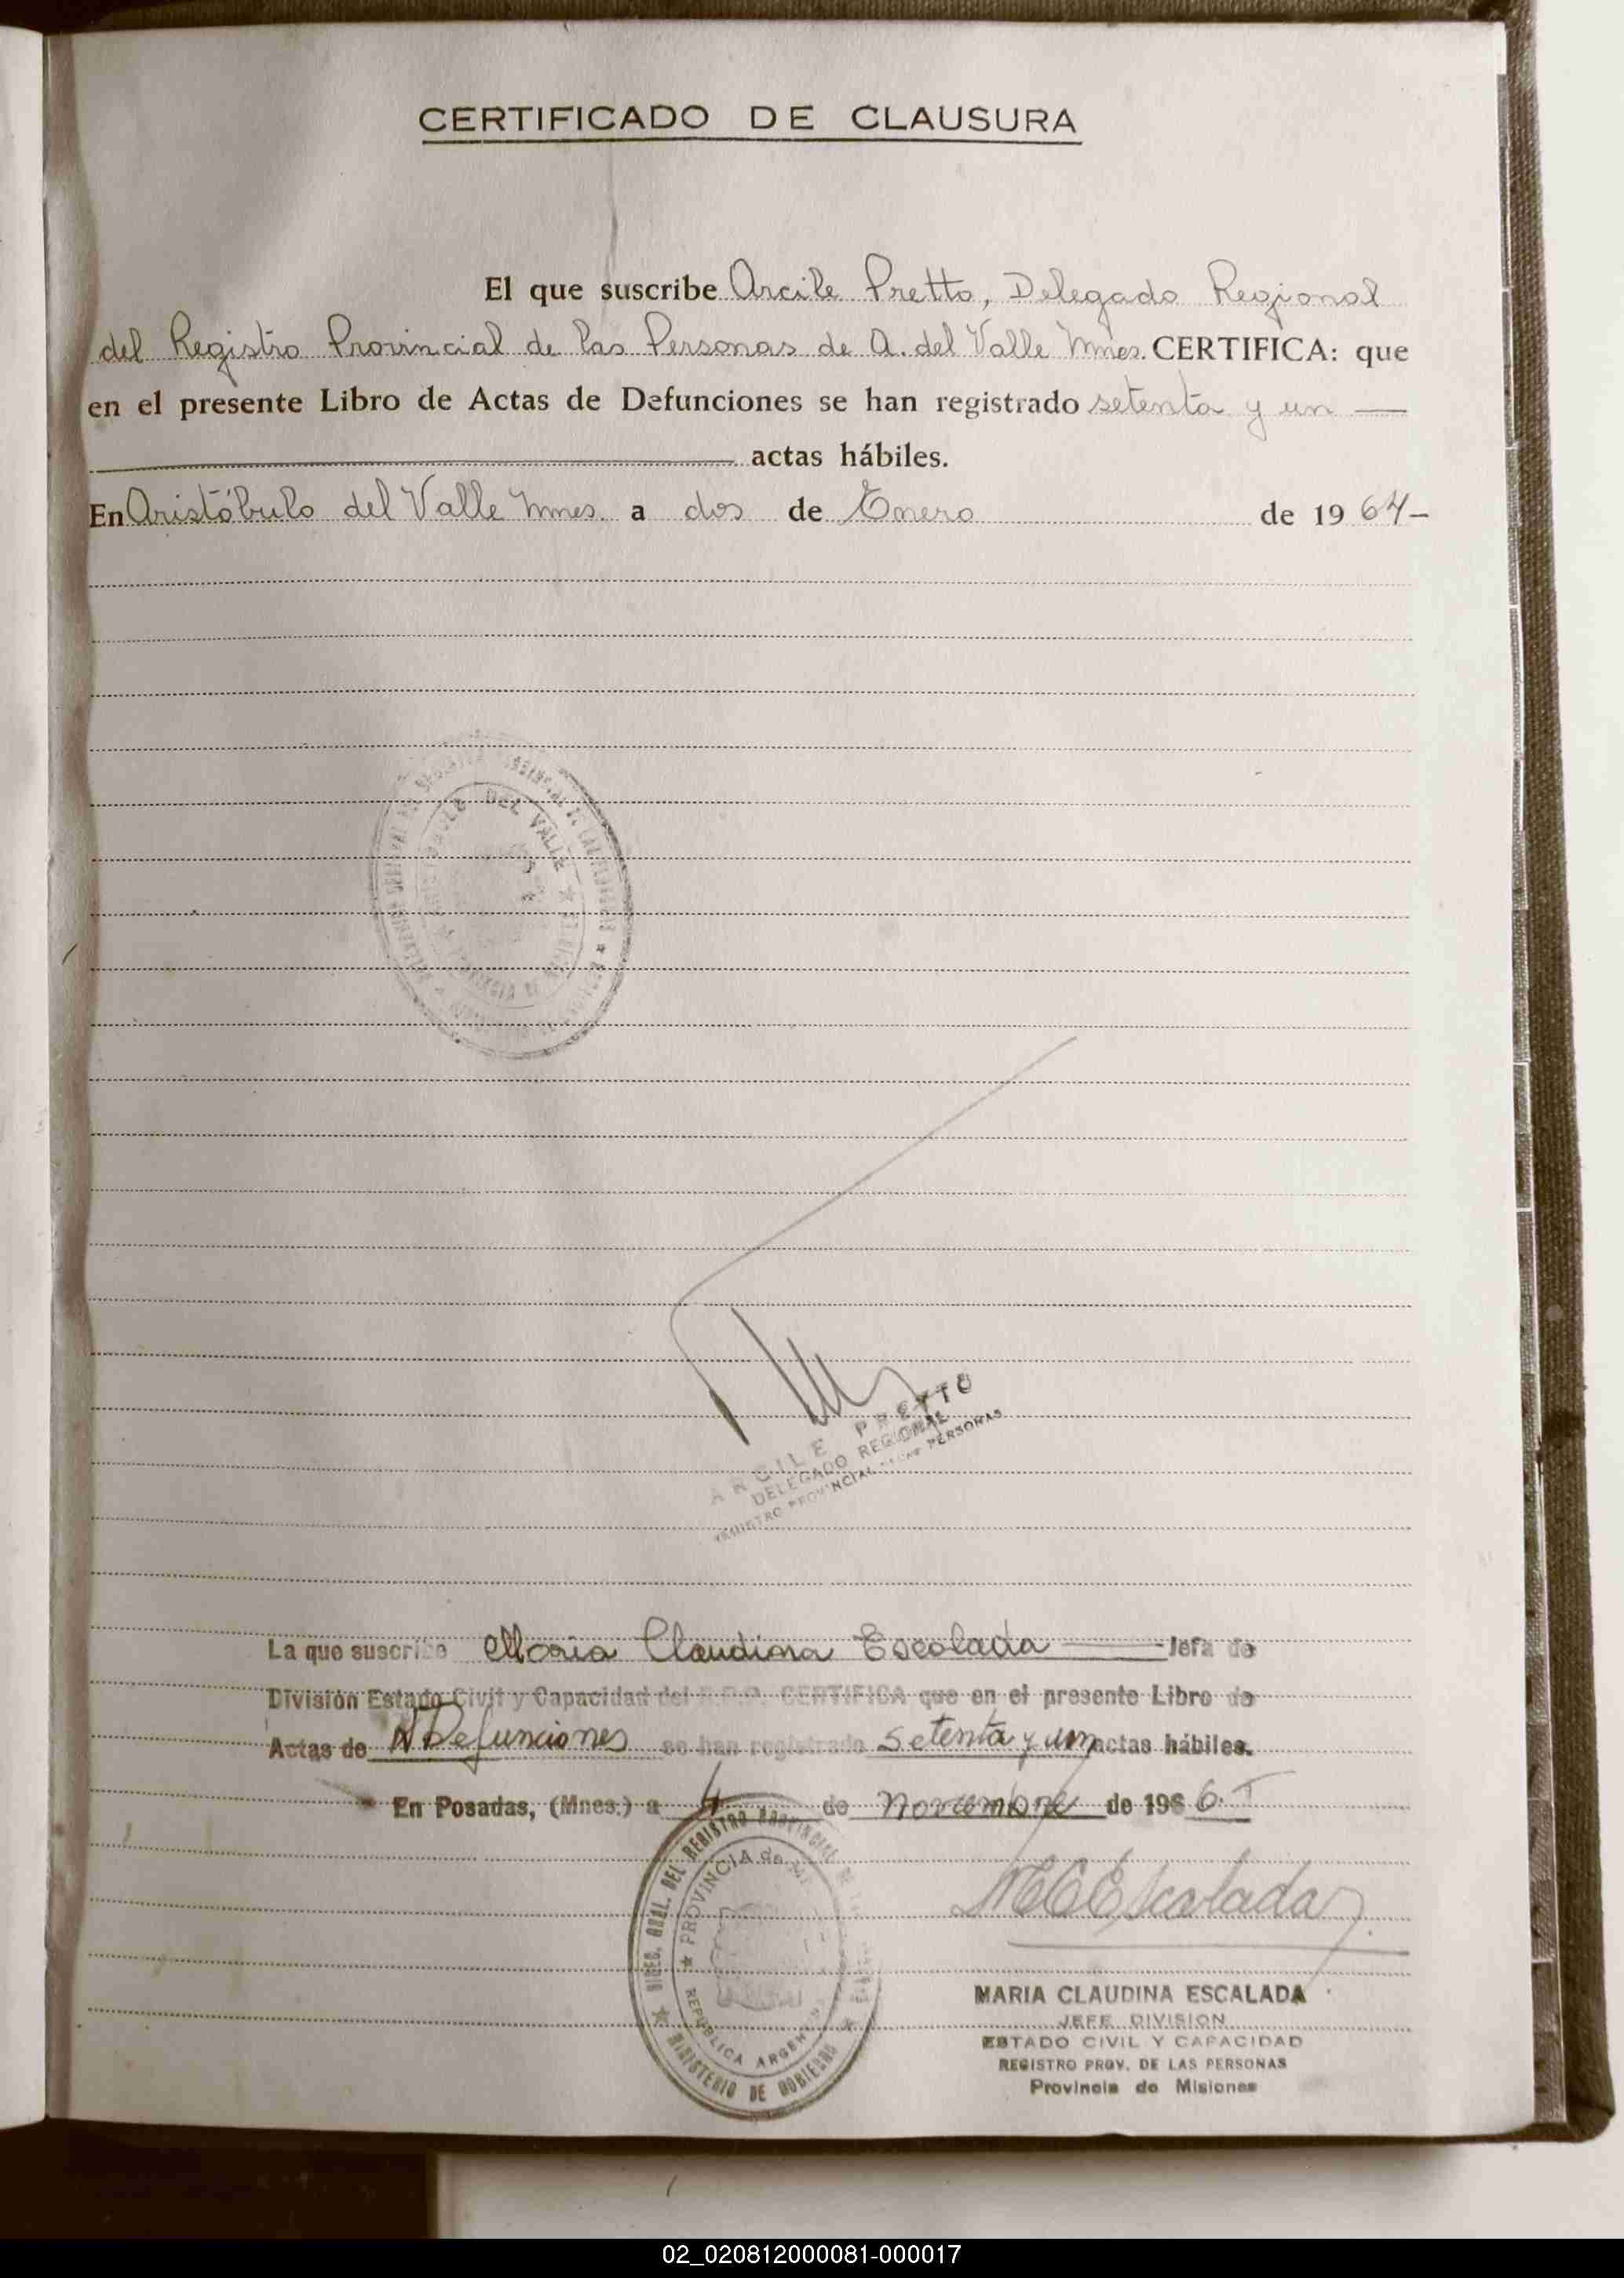 CERTIFICADO DE CLAUSURA
El que suscribe Arcile Pretto, Delegado Regional
del Registro Provincial de las Personas de A. del Valle Mnes. CERTIFICA: que
en el presente Libro de Actas de Defunciones se han registrado setenta y un —
actas hábiles.
En Aristóbulo del Valle Mnes. a dos de Enero de 1964-
DEL VALLE
ARCILE PRETTO
DELEGADO REGIONAL
REGISTRO PROVINCIAL DE LAS PERSONAS
La que suscribe Maria Claudina Escalada — Jefa de
División Estado Civil y Capacidad del R.P.P. CERTIFICA que en el presente Libro de
Actas de Defunciones se han registrado setenta y un actas hábiles.
En Posadas, (Mnes.) a 4 de Noviembre de 1966
DIREC. GRAL. DEL REGISTRO PROVINCIAL DE
MINISTERIO DE GOBIERNO
PROVINCIA de
REPUBLICA ARGENTINA
MCEscalada
MARIA CLAUDINA ESCALADA
JEFE DIVISION
ESTADO CIVIL Y CAPACIDAD
REGISTRO PROV. DE LAS PERSONAS
Provincia de Misiones
02_020812000081-000017